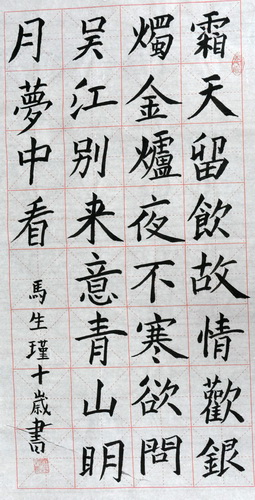 霜天留飲故情歡銀
燭金爐夜不寒欲問
吴江别来意青山明
月夢中看
馬生瑾十歲書